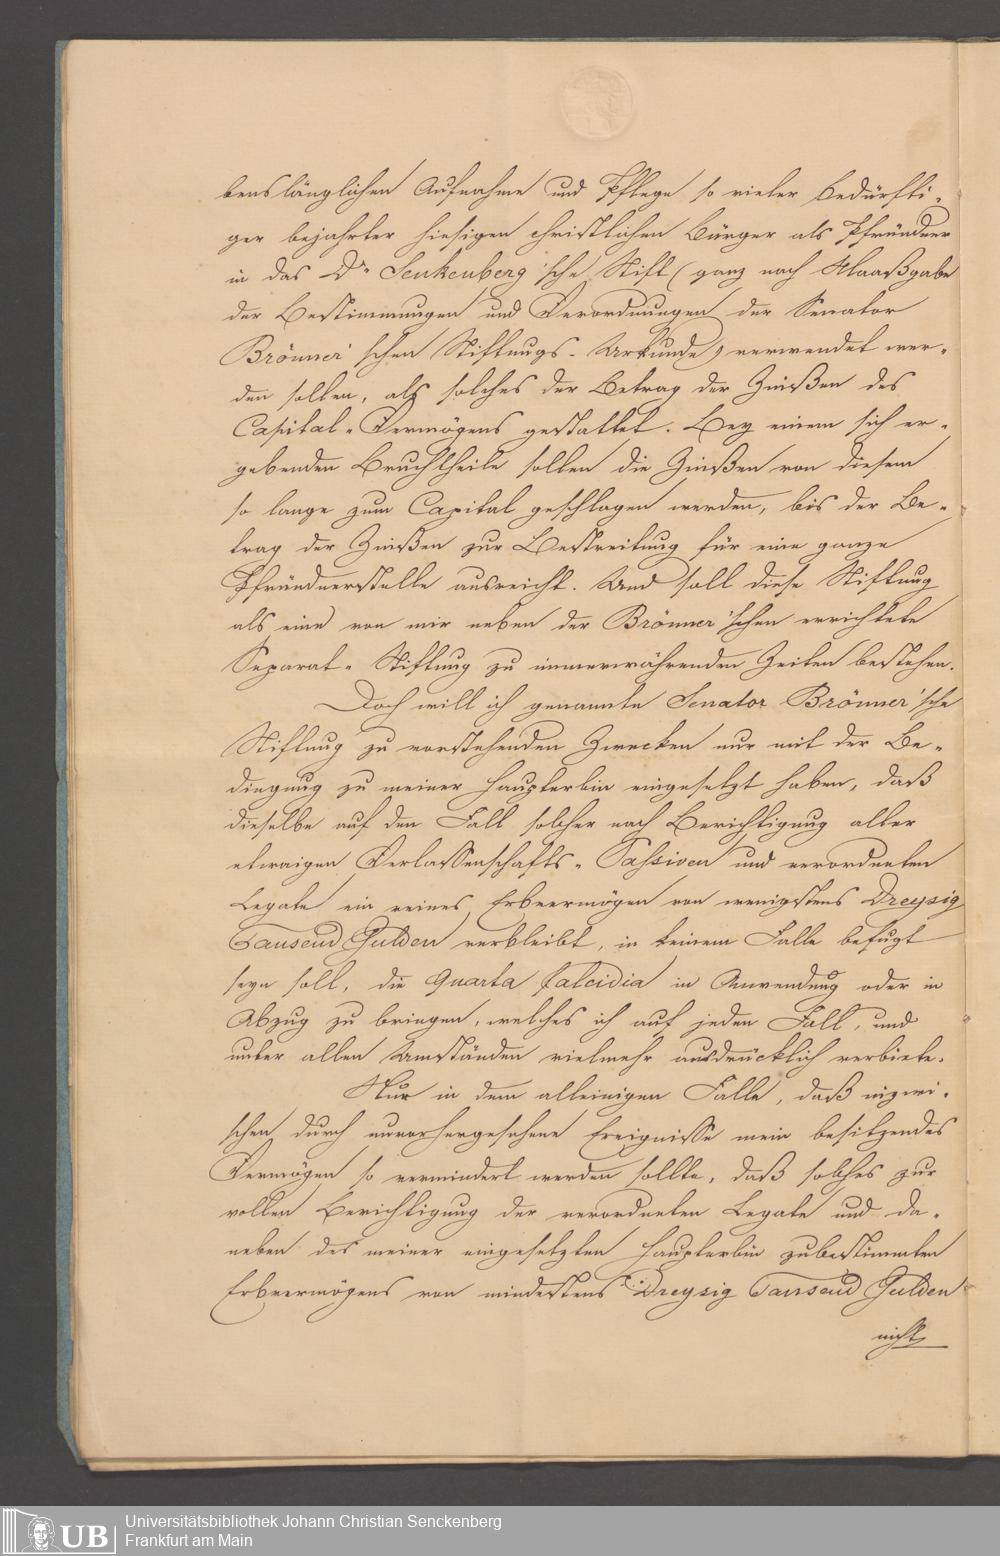 benslänglichen Aufnahme und Pflege so vieler bedürfti-
ger bejahrter hiesigen christlichen Bürger als Pfründner
in das Dr. Senkenberg'sche Stift (ganz nach Maaßgabe
der Bestimmungen und Verordnungen der Senator
Brönner'schen Stiftungs-Urkunde) verwendet wer-
den sollen, als solches der Betrag der Zinßen des
Capital-Vermögens gestattet. Bey einem sich er-
gebenden Bruchtheile sollen die Zinßen von diesem
so lange zum Capital geschlagen werden, bis der Be-
trag der Zinßen zur Bestreitung für eine ganze
Pfründnerstelle ausreicht. Und soll diese Stiftung
als eine von mir neben der Brönner'schen errichtete
Separat-Stiftung zu immerwährenden Zeiten bestehen.
Doch will ich genannte Senator Brönner'sche
Stiftung zu vorstehenden Zwecken nur mit der Be-
dingung zu meiner Haupterbin eingesetzt haben, daß
dieselbe auf den Fall solcher nach Berichtigung aller
etwaigen Verlassenschafts-Passiven und verordneten
Legate ein reines Erbvermögen von wenigstens Dreysig
Tausend Gulden verbleibt, in keinem Falle befugt
seyn soll, die Quarta falcidia in Anwendung oder in
Abzug zu bringen, welches ich auf jeden Fall, und
unter allen Umständen vielmehr ausdrücklich verbiete.
Nur in dem alleinigen Falle, daß inzwi-
schen durch unvorhergesehene Ereignisse mein besitzendes
Vermögen so vermindert werden sollte, daß solches zur
vollen Berichtigung der verordneten Legate und da-
neben des meiner eingesetzten Haupterbin zubestimmten
Erbvermögens von mindestens Dreysig Tausend Gulden
nicht
UB
Universitätsbibliothek Johann Christian Senckenberg
Frankfurt am Main